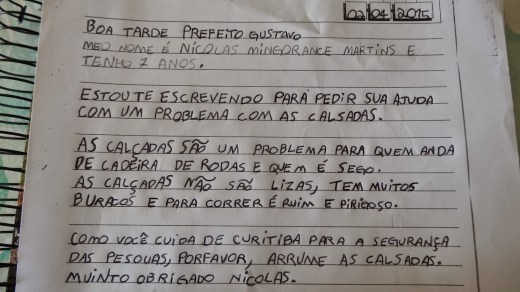 02 04 2015
BOA TARDE PREFEITO GUSTAVO
MEU NOME É NICOLAS MINEDRANCE MARTINS E
TENHO 7 ANOS.
ESTOU TE ESCREVENDO PARA PEDIR SUA AJUDA
COM UM PROBLEMA COM AS CALSADAS.
AS CALÇADAS SÃO UM PROBLEMA PARA QUEM ANDA
DE CADEIRA DE RODAS E QUEM É SEGO.
AS CALÇADAS NÃO SÃO LIZAS, TEM MUITOS
BURACOS E PARA CORRER É RUIM E PIRIGOSO.
COMO VOCÊ CUIDA DE CURITIBA PARA A SEGURANÇA
DAS PESOUAS, PORFAVOR, ARRUME AS CALSADAS.
MUINTO OBRIGADO NICOLAS.